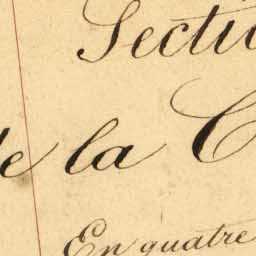 Secti
de la C
En quatre